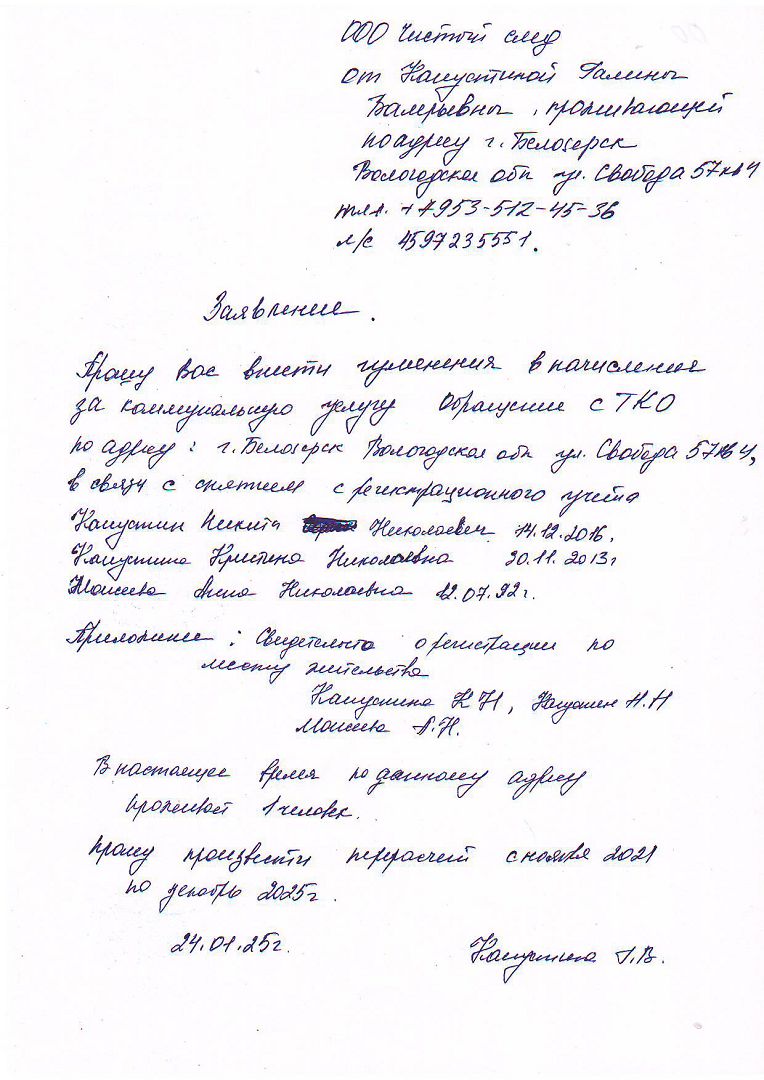 ООО Чистый след
от Капустиной Галины
Валерьевны, проживающей
по адресу г. Белозерск
Вологодская обл ул. Свобода 57 кв 4
тел. +7953-512-45-36
л/с 4597235551.
Заявление.
Прошу Вас внести изменения в начисления
за коммунальную услугу Обращение с ТКО
по адресу: г. Белозерск Вологодская обл ул. Свобода 57 кв 4,
в связи с снятием с регистрационного учёта
Капустин Никита Николаевич 14.12.2016.
Капустина Кристина Николаевна 30.11.2013г
Моисеева Анна Николаевна 12.07.92г.
Приложение: Свидетельства о регистрации по
месту жительства
Капустина К Н, Капустин Н.Н
Моисеева А.Н.
В настоящее время по данному адресу
проживает 1 человек.
Прошу произвести перерасчёт с ноября 2021
по декабрь 2025г.
24.01.25г.
Капустина Г.В.